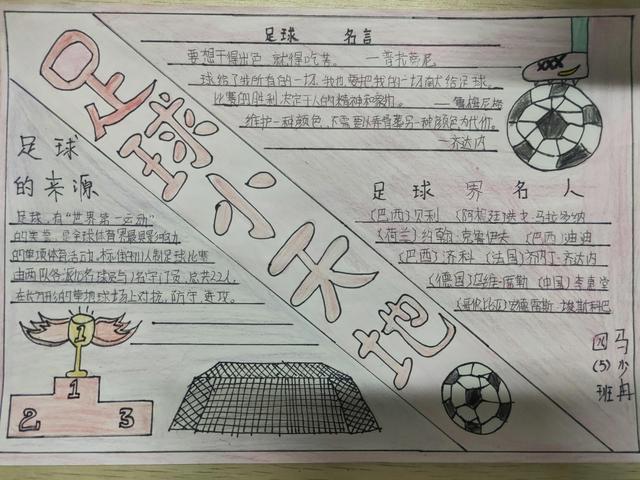 足球小天地
足球 名言
要想干得出色,就得吃苦。 —普拉蒂尼
球给了我所有的一切,我也要把我的一切献给足球。
比赛的胜利,决定于人的精神和
维护一种颜色,不需要以弄脏另一种颜色为代价。
—齐达内
足球
的来源
足球,有“世界第一运动”
的美誉,是全球体育界最具影响力
的单项体育活动,标准的11人制足球比赛
由两队各派10名球员与1名守门员,总共22人,
在长方形的草地球场上对抗,防守、进攻。
足球 界名人
(巴西)贝利 (阿根廷)迭戈·马拉多纳
(荷兰)约翰·克鲁伊夫 (巴西)迪迪
(巴西)济科 (法国)齐内丁·齐达内
(德国)乌维·席勒 (中国)李惠堂
(哥伦比亚)安德雷斯·埃斯科巴
1
2 1 3
四(5)班
马少冉